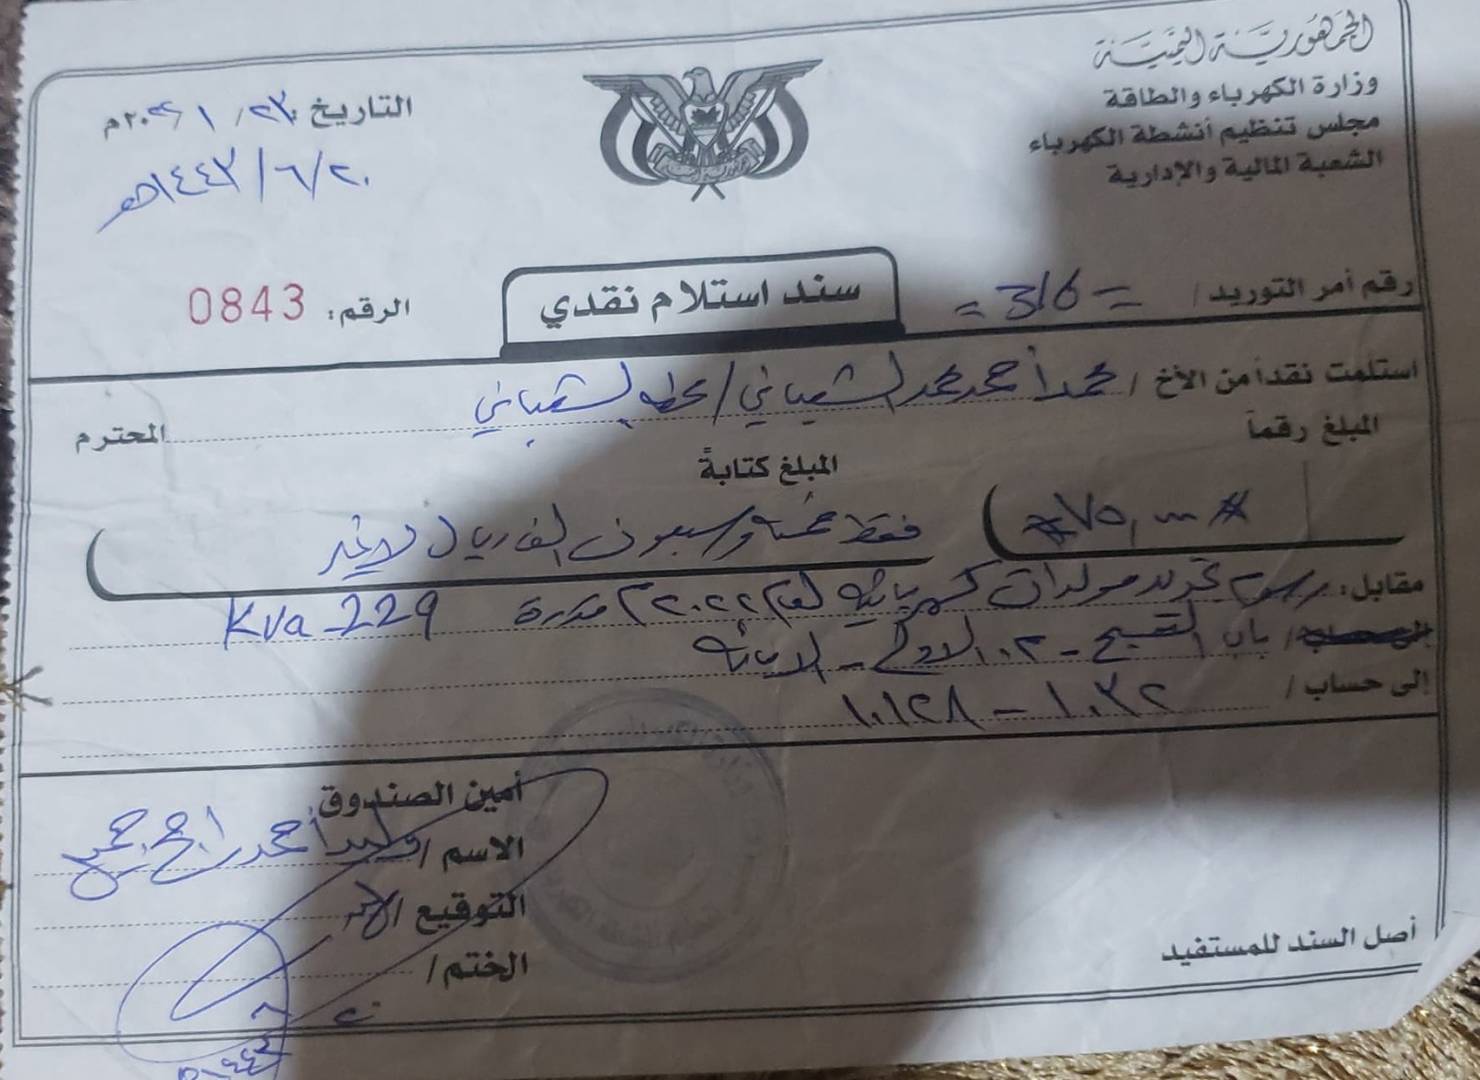 الجمهورية اليمنية
وزارة الكهرباء والطاقة
مجلس تنظيم أنشطة الكهرباء
الشعبة المالية والإدارية
التاريخ ٢٣ / ١ / ٢٠٢٢م
٢٠ / ٦ / ١٤٤٣هـ
رقم أمر التوريد / = 316 =
سند استلام نقدي
الرقم: 0843
استلمت نقداً من الأخ / محمد أحمد محمد الشيباني / محطة الشيباني المحترم
المبلغ رقماً
المبلغ كتابةً
# ٧٥,٠٠٠ #
فقط خمسة وسبعون الف ريال لا غير
مقابل: رسوم تجديد مولدات كهربائية لعام ٢٠٢٢م قدرة Kva - 229
باب - ٢٠٠ الأولى -
إلى حساب / ١٠٣٢ - ١٠١٢٨
أمين الصندوق
الاسم / وليد أحمد راجح
التوقيع /
الختم /
أصل السند للمستفيد